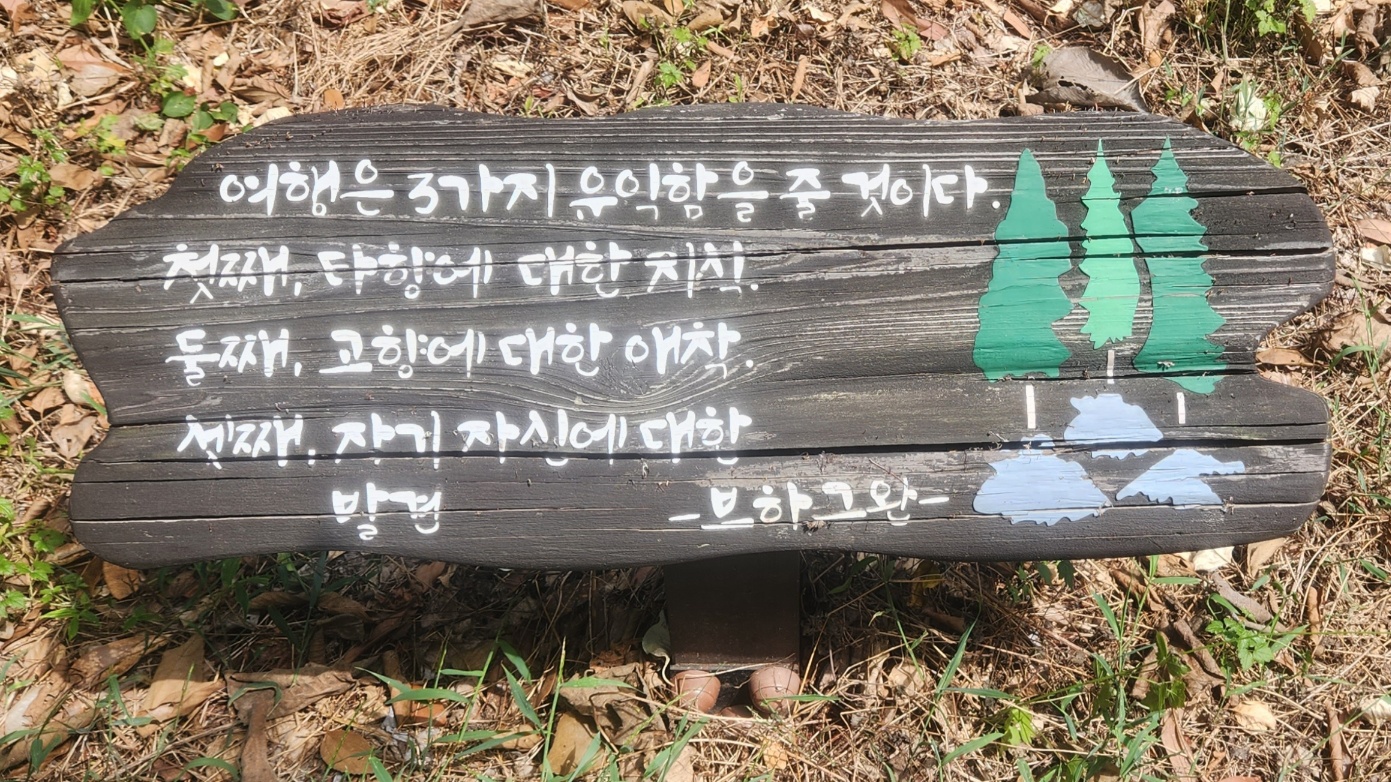 여행은 3가지 유익함을 줄 것이다.
첫째, 타향에 대한 지식.
둘째, 고향에 대한 애착.
셋째, 자기 자신에 대한
발견
-브하그완-